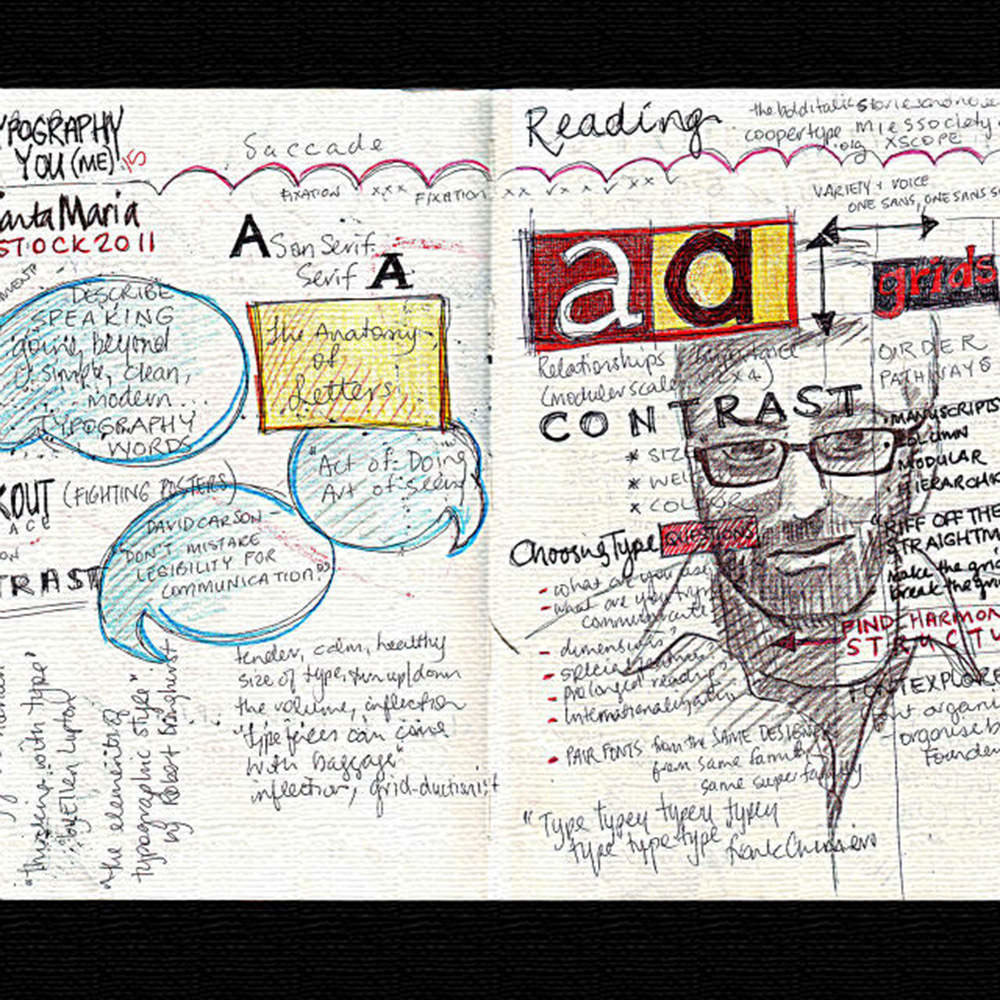 YPOGRAPHY
YOU (ME)
Saccade
FIXATION xxx FIXATION xx
antaMaria
STOCK 2011
A San Serif
Serif A
DESCRIBE
SPEAKING
going beyond
simple, clean,
modern
TYPOGRAPHY
WORDS
the Anatomy
of
Letters
"Act of Doing
Art of Seeing
KOUT (FIGHTING POSTERS)
TRAST
DAVID CARSON -
"DON'T MISTAKE
LEGIBILITY FOR
COMMUNICATION."
"thinking with type"
by Ellen Lupton
"the elements of
typographic style"
by Robert Bringhurst
tender, calm, healthy
size of type, turn up/down
the volume, inflection
"type faces can come
with baggage"
inflection, grid-ductionist
Reading
the bold italic
coopertype miessociety
.org XSCOPE
VARIETY + VOICE
ONE SANS, ONE SANS S
a a
grids
Relationships Importance
(modular scale,
ORDER
PATHWAYS
CONTRAST
* SIZ
* WEI
x COLOR
MANUSCRIPTS
COLUMN
MODULAR
HIERARCHI
Choosing Type questions
- what are you
- what are you tryin
communicate
- dimensions?
- special features?
- prolonged reading
- Internationalization
- PAIR FONTS from the SAME DESIGNER
from same family
same super family
"RIFF OFF THE
STRAIGHTM
make the grid
break the gri
FIND HARMON
STRUCTU
FONT EXPLORE
organi
- organise b
Founder
"Type typey typey typey
type type type